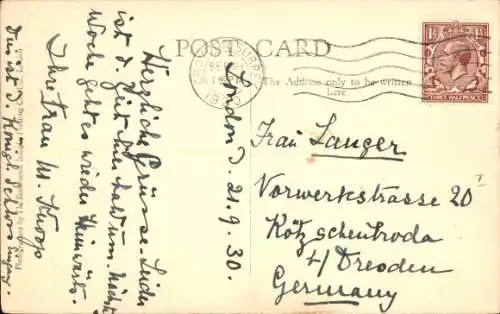 POST CARD
The Address only to be written
here.
THREE HALFPENCE
London D. 21.9.30.
Herzliche Grüsse. Leider
ist d. Zeit bald um. Nächste
Woche geht es wieder heimwärts.
Ihre Frau M. Knoop
Das ist d. Königl. Schloss
Frau Langer
Vorwerkstrasse 20
Kötzschenbroda
b/ Dresden
Germany